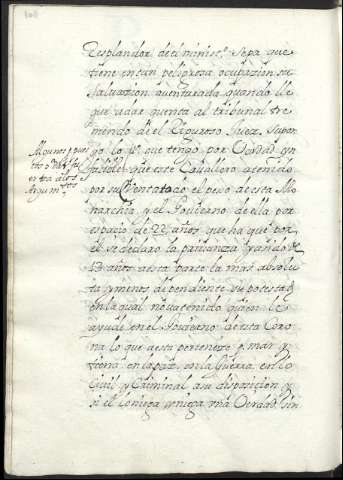 108
Resplandor de el minist.º Sepa que
tiene en tan peligrosa ocupazion su
saluazion auenturada quando lle
gue a dar quenta al tribunal tre
mendo de el Riguroso Juez. Supon
go lo p.º que tengo por Verdad yn
falible que este Cauallero a tenido
por su quenta todo el peso de esta Mo
narchia y el Gouierno de ella por
espazio de 22 años que ha que por
el se declaro la priuanza y años
13 años a esta parte la mas absolu
ta y menos dependiente su potestad
en la qual no ha tenido quien le
ayude en el Gouierno de esta Coro
na lo que a esta pertenese p. mar y
tierra en la paz, en la Guerra, en lo
Ciuil y Criminal a su disposizion y
si el lo niega y niega una Verdad sin
Algunos